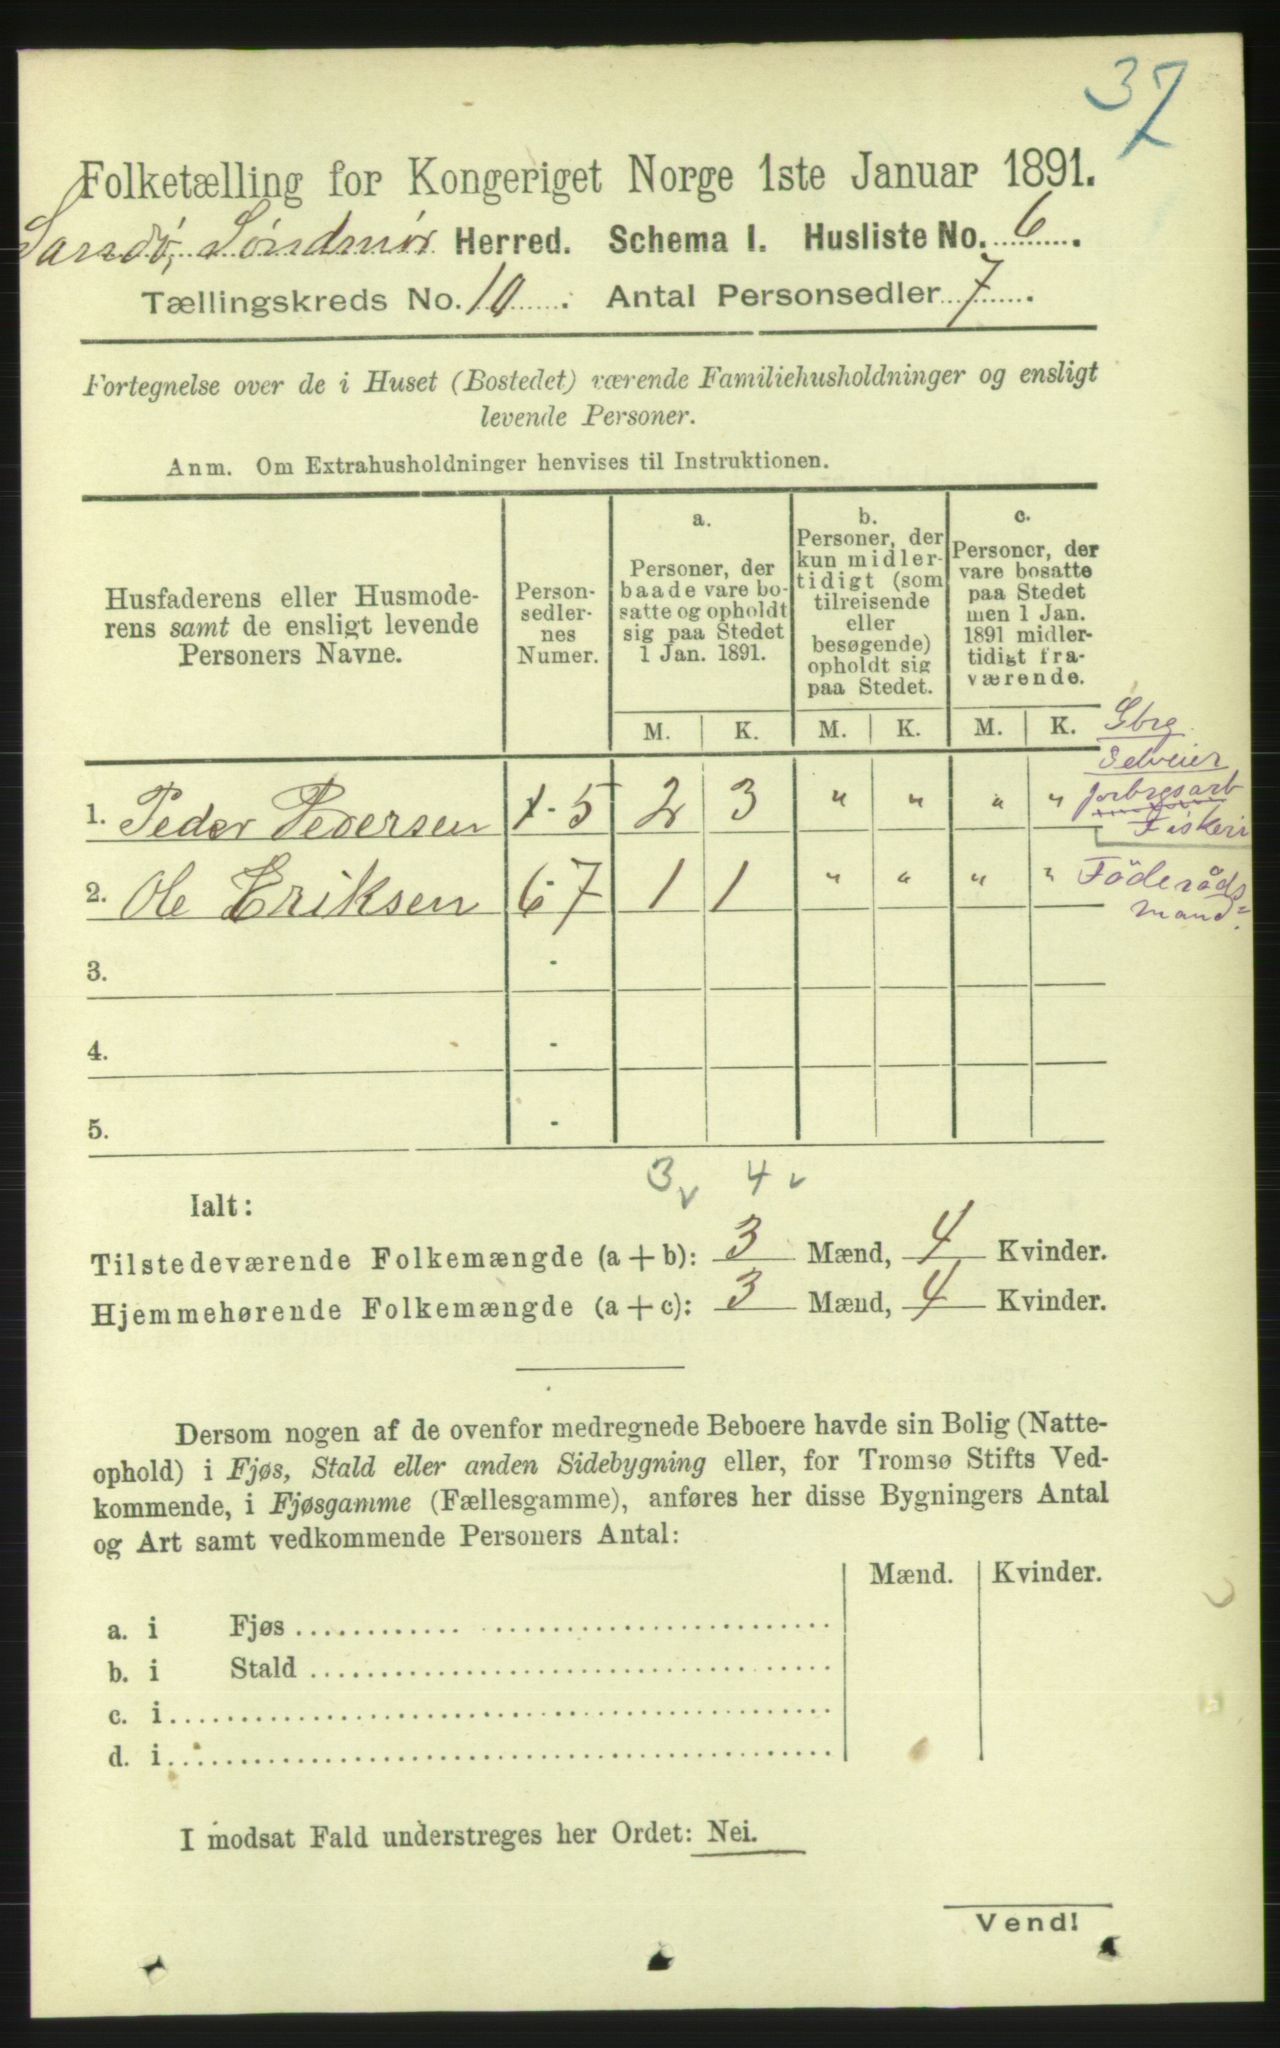 37
Folketælling for Kongeriget Norge 1ste Januar 1891.
Sandø, Søndmør Herred. Schema I. Husliste No. 6.
Tællingskreds No. 10. Antal Personsedler 7.
Fortegnelse over de i Huset (Bostedet) værende Familiehusholdninger og ensligt
levende Personer.
Anm. Om Extrahusholdninger henvises til Instruktionen.
Husfaderens eller Husmode-
rens samt de ensligt levende
Personers Navne.
Person-
sedler-
nes
Numer.
a.
Personer, der
baade vare bo-
satte og opholdt
sig paa Stedet
1 Jan. 1891.
b.
Personer, der
kun midler-
tidigt (som
tilreisende
eller
besøgende)
opholdt sig
paa Stedet.
c.
Personer, der
vare bosatte
paa Stedet
men 1 Jan.
1891 midler-
tidigt fra-
værende.
M. K. M. K. M. K.
Gbrg.
Selveier
jorbrgsarb
Fiskeri
1. Peder Pedersen 1-5 2 3 " " " "
2. Ole Eriksen 6-7 1 1 " " " " Föderåds
mand
3. -
4. -
5. -
3 v 4 v
Ialt:
Tilstedeværende Folkemængde (a + b): 3 Mænd, 4 Kvinder.
Hjemmehørende Folkemængde (a + c): 3 Mænd, 4 Kvinder.
Dersom nogen af de ovenfor medregnede Beboere havde sin Bolig (Natte-
ophold) i Fjøs, Stald eller anden Sidebygning eller, for Tromsø Stifts Ved-
kommende, i Fjøsgamme (Fællesgamme), anføres her disse Bygningers Antal
og Art samt vedkommende Personers Antal:
Mænd. Kvinder.
a. i Fjøs
b. i Stald
c. i
d. i
I modsat Fald understreges her Ordet: Nei.
Vend!